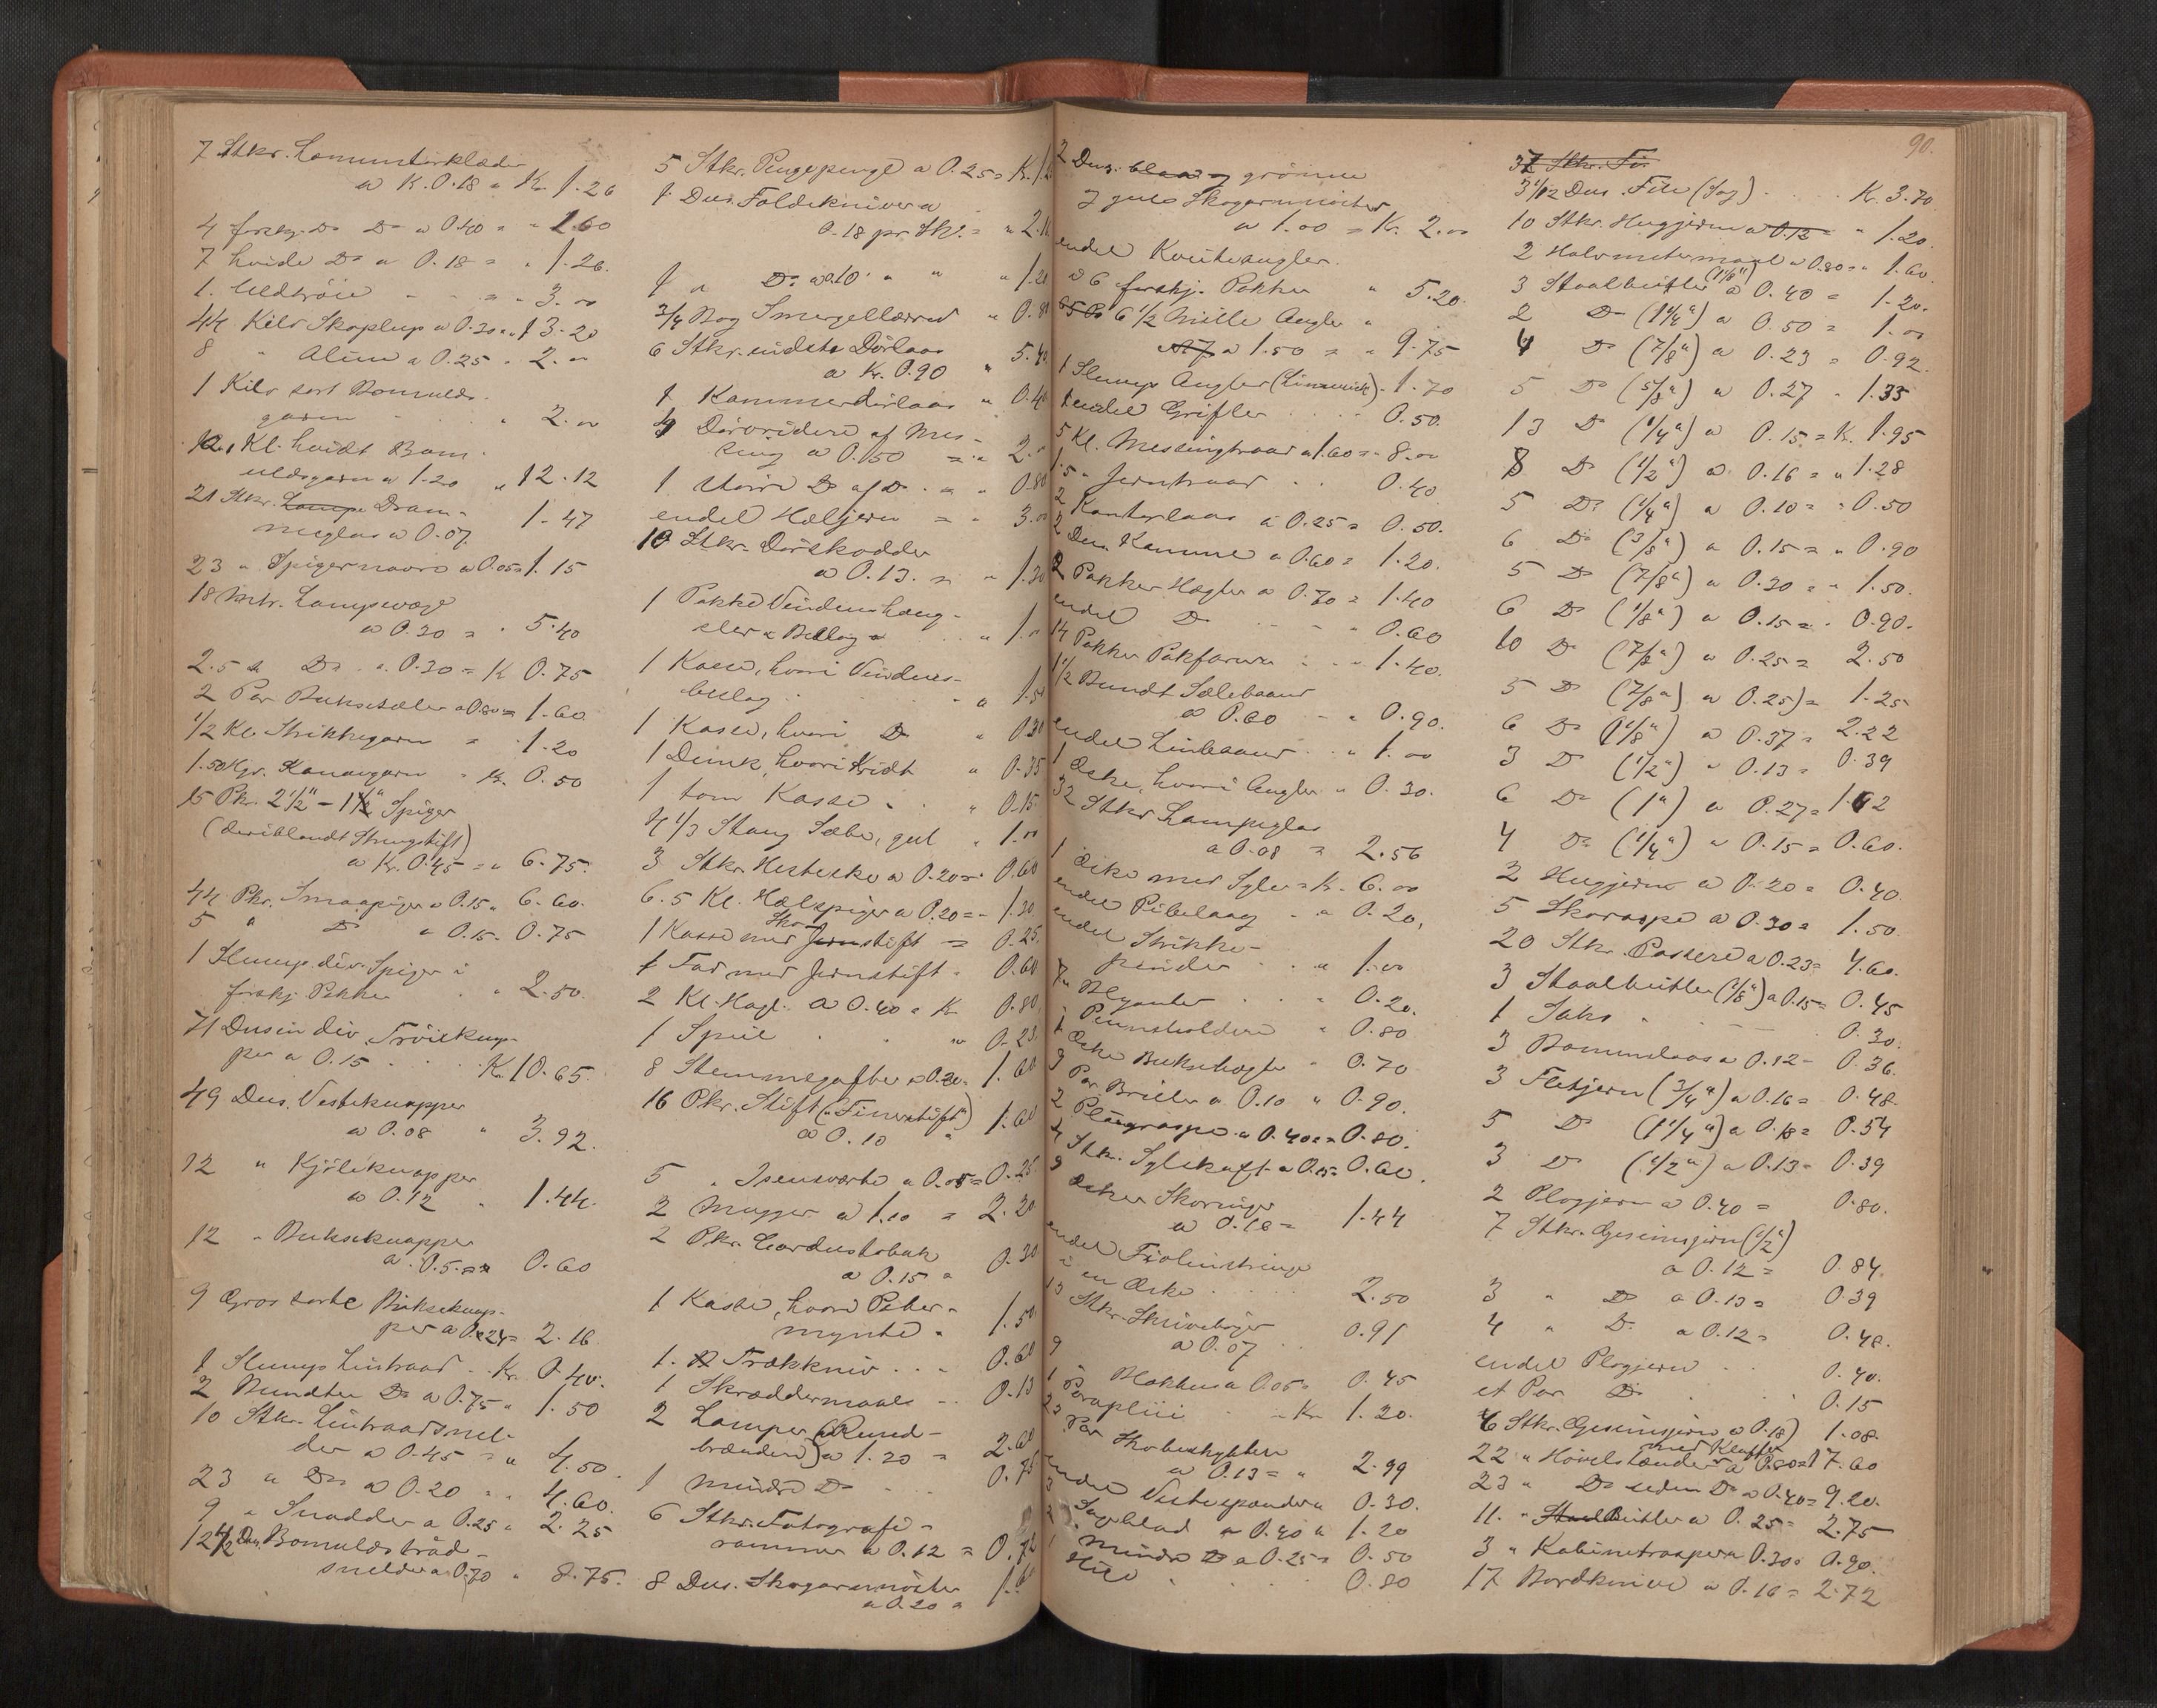 7 Stkr. Lommetörklæder
a K. 0.18 = Kr. 1.26
4 forskj. Do Do a 0.40 = " 1.60
7 hvide Do a 0.18 = " 1.26.
1. Uldtröie - - = " 3.00
44 Kilo Skoplup a 0.30 = " 13.20
8 " Alun a 0.25 " 2.00
1 Kilo sort Bomulds-
garn " 2.00
10.1 Kl. hvidt Bom-
uldsgarn a 1.20 " 12.12
21 Stkr. Dram-
meglas a 0.07. 1.47
23 " Spigernavre a 0.05 = 1.15
18 Mtr. Lampevæge
a 0.30 = " 5.40
2.5 " Do a 0.30 = K 0.75
2 Par Buksesæler a 0.80 = 1.60
1/2 Kl. Strikkegarn = 1.20
1.50 Kgr. Kanavgarn " K. 0.50
15 Pk. 2 1/2" - 1 1/2" Spiger
(deriblandt Strengstift)
a Kr. 0.45 = " 6.75.
44 Pkr. Smaapiger a 0.15 " 6.60.
5 " Do a 0.15 = 0.75
1 Slump div. Spiger i
forskj. Pakker " 2.50.
71 Dusin div. Tröieknap-
per a 0.15 K. 10.65.
49 Dus. Vesteknapper
a 0.08 " 3.92.
12 " Kjoleknapper
a 0.12 " 1.44.
12 " Bukseknapper
a 0.5 = " 0.60
9 Gros sorte Bukseknap-
per a 0.24 = 2.16
1 Slump Lintraad .. Kr. 0.40.
2 Bundter Do a 0.75 " 1.50
10 Stkr. Lintraadsnel-
der a 0.45 = " 4.50.
23 " Do a 0.20 " 4.60.
9 " Snadder a 0.25 " 2.25
12 1/2 Dus. Bomuldstråd-
snelder a 0.70 " 8.75.
5 Stkr. Pengepunge a 0.25 = K. 1.2
1 Dus. Foldeknive a
0.18 pr. Stk. = " 2.1
1 " Do a 0.10 " " " 1.20
3/4 Bog Smergellærred " 0.80
6 Stkr. indste Dörlaas
a Kr. 0.90 " 5.40
1 Kammerdörlaas " 0.40
4 Dörvridere af Mes-
sing a 0.50 = " 2.00
1 större Do af Do . = " 0.80
endel Hæljern = " 3.00
10 Stkr. Dörskodder
a 0.13. = " 1.30
1 Pakke Vindueshæng-
sler & Beslag " 1.00
1 Kasse, hvori Vindues-
beslag " 1.50
1 Kasse, hvori Do " 0.30
1 Dunk, hvori Kridt " 0.35
1 tom Kasse . " 0.15
4 1/3 Stang Sæbe, gul " 1.00
3 Stkr. Hestesko a 0.20 = 0.60
6.5 Kl. Hælspiger a 0.20 = " 1.30
1 Kasse med Skostift = 0.25
1 Fad med Jernstift = 0.60
2 Kl. Hagl. a 0.40 = K 0.80
1 Speil " 0.25
8 Stemmegafter a 0.20 " 1.60
16 Pkr. Stift ("Finerstift")
a 0.10 " 1.60
5 " Isensværte a 0.05 = 0.25
2 Mugger a 1.10 = 2.20
2 Pkr. Cardustobak
a 0.15 = 0.30
1 Kasse, hvori Peber-
mynte . 1.50
1. Trækkniv . . . 0.60
1 Skræddermaal - . 0.13
2 Lamper (Rund-
brændere) a 1.20 = 2.40
1 mindre Do . . . 0.75
6 Stkr. Fotografi-
rammer a 0.12 = 0.72
8 Dus. Skogarnsnöster
a 0.20 = 1.60
90.
2 Dus. grönne
& gule Skogarnsnöster
a 1.00 = Kr. 2.00
endel Kveiteangler.
a 6 forskj. Pakker " 5.20
6 1/2 Mille Angler "
a 1.50 = " 9.75
1 Slump Angler (Limerick) - 1.70
endel Grifler . . . . 0.50.
5 Kl. Messingtraad a 1.60 = 8.00
1.5 " Jerntraad . . 0.40
2 Kantorlaas a 0.25 = 0.50.
2 Dus. Kamme a 0.60 = 1.20.
2 Pakker Hægter a 0.70 = 1.40
endel Do - - " 0.60
14 Pakker Pakfarver . . " 1.40.
1 1/2 Bundt Sælebaand
a 0.60 - " 0.90.
endel Linbaand . . " 1.00
1 Æske, hvori Angler " 0.30.
32 Stkr Lampeglas
a 0.08 = 2.56
1 Æske med Syler = K. 6.00
endel Pibelaag - " 0.20,
endel Strikke-
pinder . . " 1.00
7 Blyanter . . . " 0.20.
Penneholdere " 0.80
1 Æske Buksehægter - 0.70
9 Par Briller a 0.10 " 0.90.
2 Plögraspe a 0.40 = 0.80.
4 Stkr. Sylskaft a 0.15 = 0.60.
9 Æsker Skoringe
a 0.16 = 1.44
endel Fiolinstrenge
i en Æske . . . . 2.50
13 Stkr. Skrivebøger
a 0.07 . . 0.91
9 Blækhus a 0.05 = 0.45
1 Paraplui - Kr 1.20.
23 Par Skobeskyttere
a 0.13 = " 2.99
endel Vestespænder " 0.30.
3 Sagblad a 0.40 " 1.20
2 mindre Do a 0.25 = 0.50
1 Hile . . . 0.80
3 1/12 Dus. File (Sag) . . . K. 3.70
10 Stkr. Hugjern a 0.12 = " 1.20.
2 Halvmetermaal a 0.80 = " 1.60
3 Staalbeitler (1 1/8") a 0.40 = 1.20.
2 Do (1 1/4") a 0.50 = 1.00
4 Do (7/8") a 0.23 = 0.92.
5 Do (5/8") a 0.27 " 1.35
13 Do (1/4") a 0.15 = K. 1.95
8 Do (1/2") a 0.16 = " 1.28
5 Do (1/4") a 0.10 = " 0.50
6 Do (3/8") a 0.15 = " 0.90
5 Do (7/8") a 0.30 = " 1.50.
6 Do (1/8") a 0.15 = " 0.90.
10 Do (7/8") a 0.25 = 2.50
5 Do (7/8") a 0.25) = 1.25
6 Do (1 1/8") a 0.37 = 2.22
3 Do (1/2") a 0.13 = 0.39
6 Do (1") a 0.27 = 1.62
4 Do (1/4") a 0.15 = 0.60.
2 Hugjern a 0.20 = 0.40.
5 Skoraspe a 0.30 = 1.50
20 Stk. Passere a 0.23 = 4.60.
3 Staalbeitler (1/8") a 0.15 = 0.45
1 Saks . 0.30.
3 Bommelaas a 0.12 - 0.36.
3 Fletjern (3/4") a 0.16 = 0.48.
5 Do (1 1/4") a 0.18 = 0.54
3 Do (1/2") a 0.13 = 0.39
2 Plogjern a 0.40 = 0.80.
7 Stkr. Gesimsjern (1/2")
a 0.12 = 0.84.
3 " Do a 0.13 = 0.39
4 " Do a 0.12 = 0.48.
endel Plogjern . . 0.40.
et Par Do . . 0.15
6 Stkr. Gesimsjern a 0.18) 1.08.
22 " Hövelstænder med Klaffer a 0.80 = 17.60
23 " Do uden Do a 0.40 = 9.20.
11. " Beitler a 0.25 = 2.75
3 " Kabinetrasper a 0.30 = 0.90.
17 Bordknive a 0.16 = 2.72